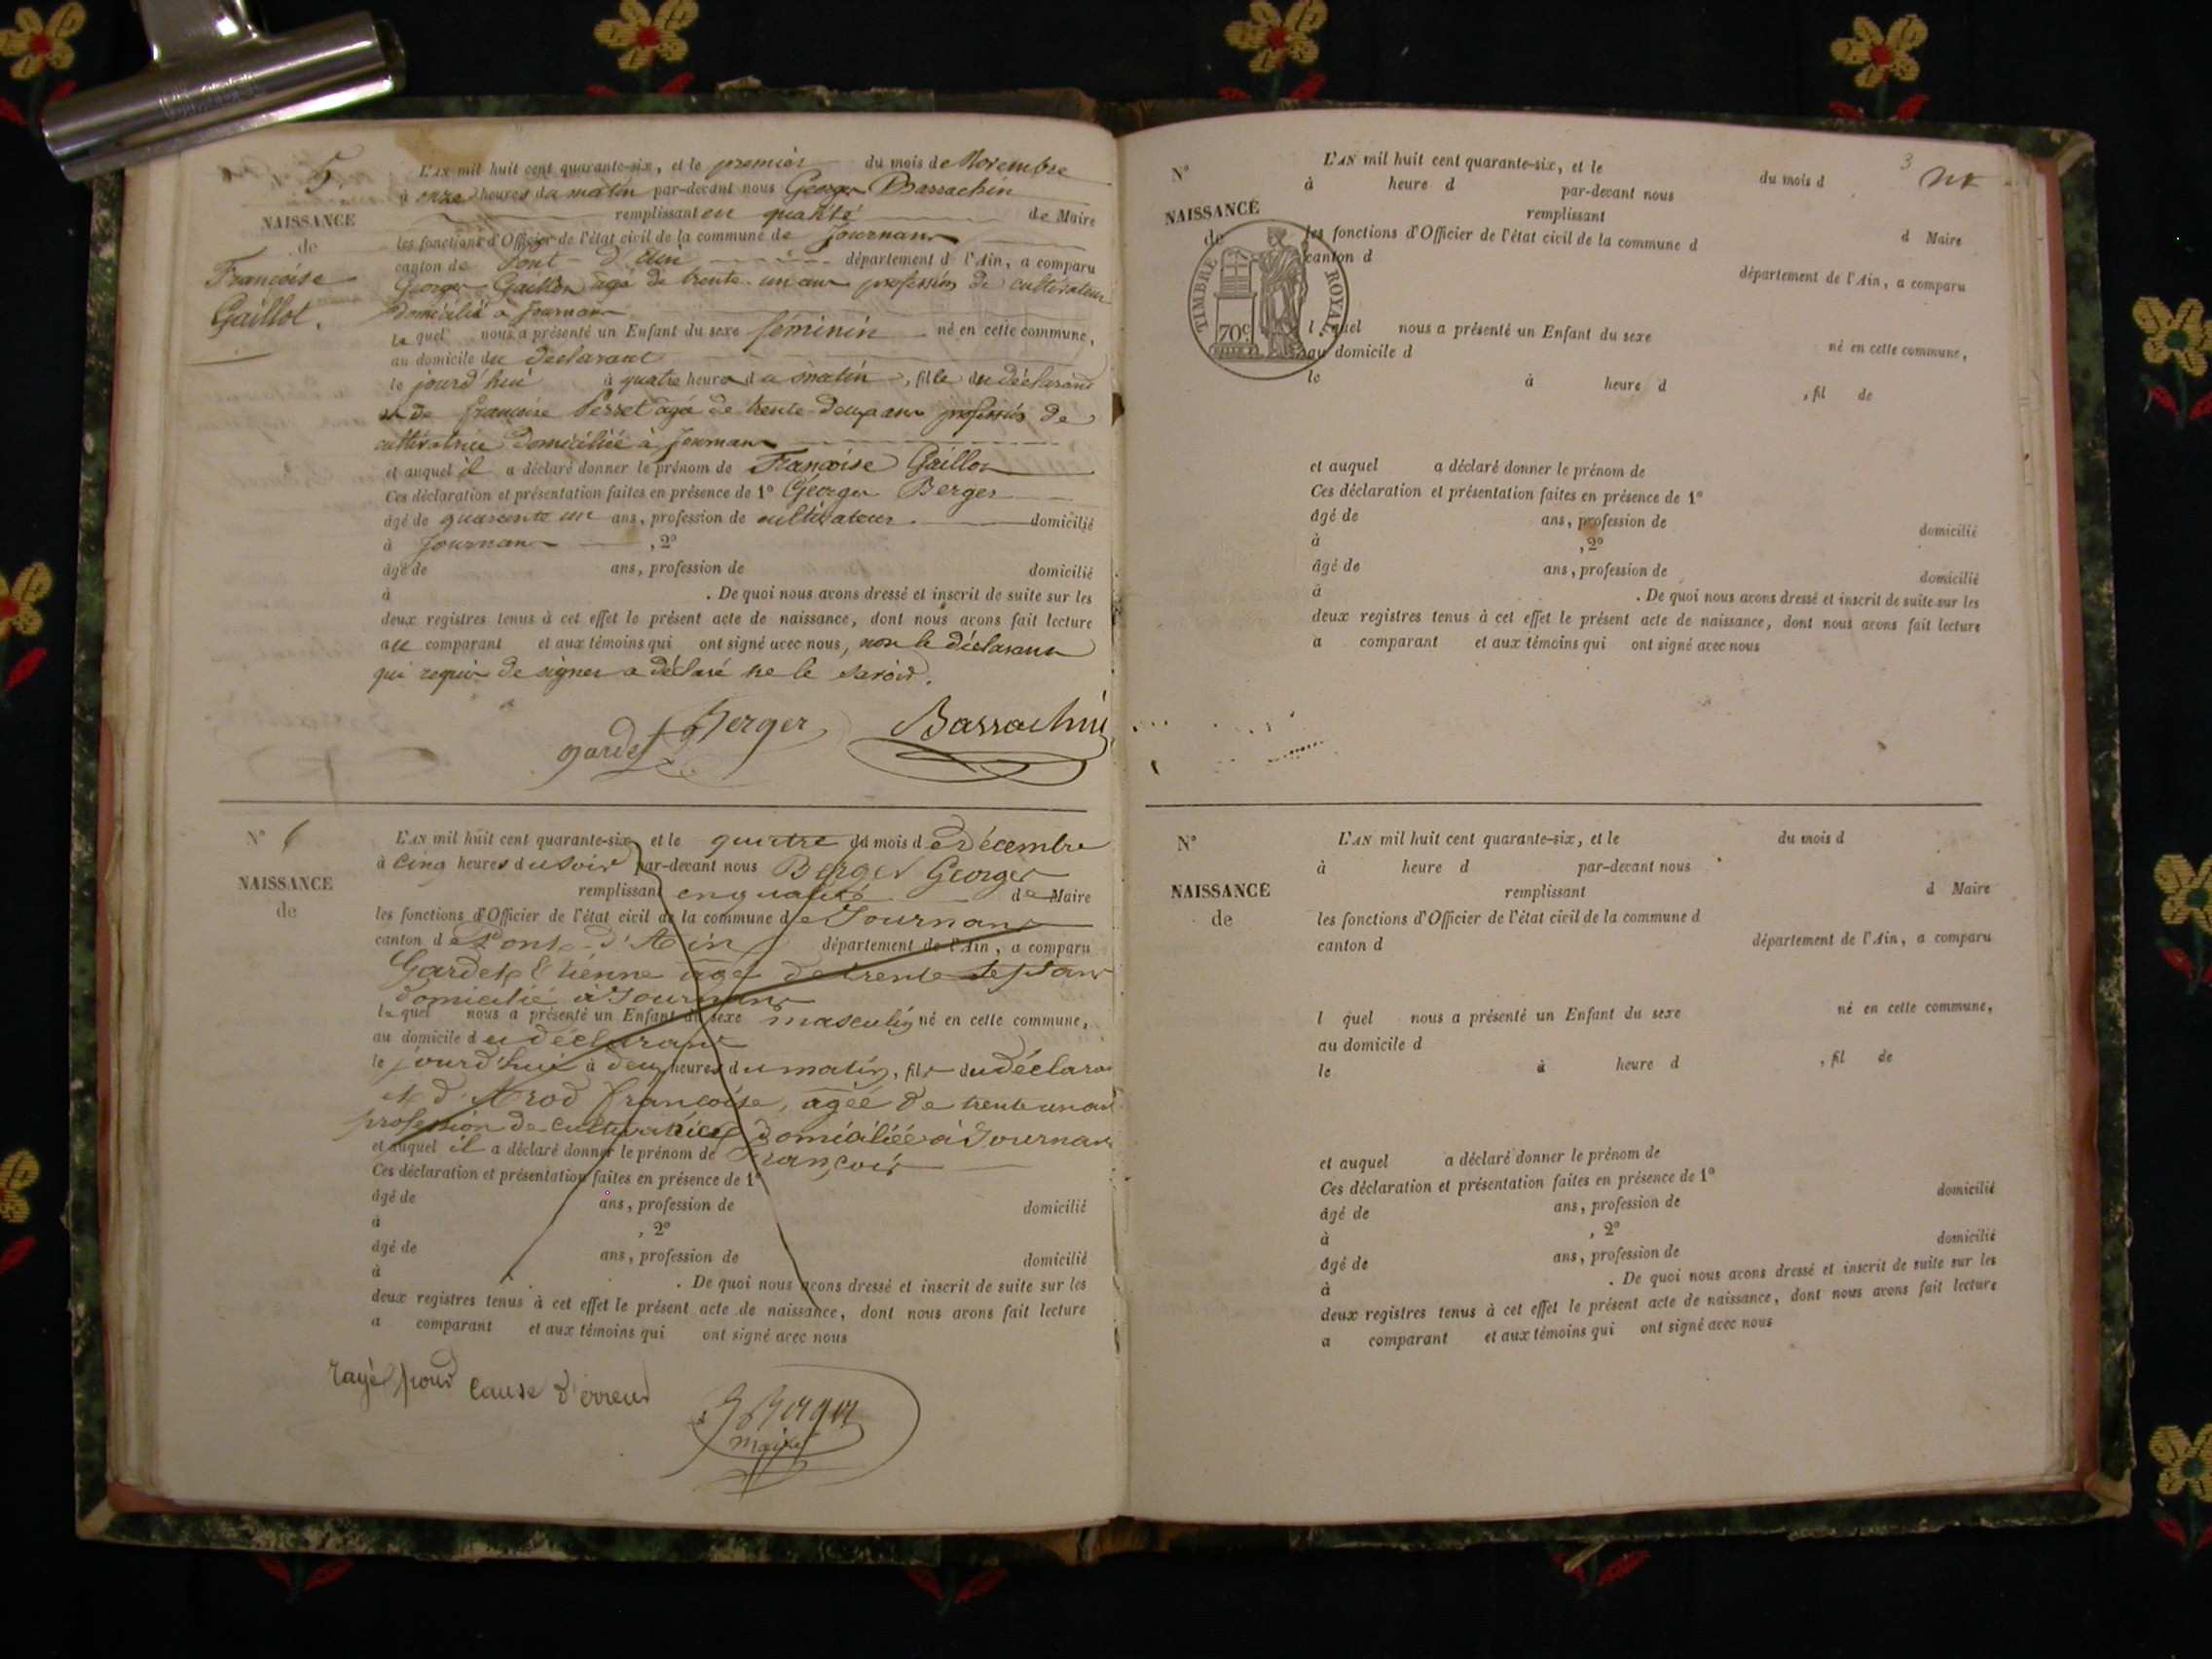 5
NAISSANCE
de
Françoise
Gaillot.
L'AN mil huit cent quarante-six, et le premier du mois de Novembre
à onze heures du matin par-devant nous George Bassachin
remplissant en qualité de Maire
les fonctions d'Officier de l'état civil de la commune de Journans
canton de Pont-d'ain département d l'Ain, a comparu
George Gaillot agé de trente-un ans profession de cultivateur
domicilié à Journans
le quel nous a présenté un Enfant du sexe féminin né en cette commune,
au domicile du déclarant
le jourd'hui à quatre heures du matin, fille du déclarant
et de françoise Perret agé de trente-deux ans profession de
cultivatrice domiciliée à Journans
et auquel il a déclaré donner le prénom de Françoise Gaillot
Ces déclaration et présentation faites en présence de 1° George Berger
âgé de quarante un ans, profession de cultivateur domicilié
à Journans , 2°
âgé de ans, profession de domicilié
à . De quoi nous avons dressé et inscrit de suite sur les
deux registres tenus à cet effet le présent acte de naissance, dont nous avons fait lecture
au comparant et aux témoins qui ont signé avec nous, non le déclarant
qui requis de signer a déclaré ne le savoir.
gardet Berger Bassachin
N° 6
NAISSANCE
de
L'AN mil huit cent quarante-six, et le quatre du mois d e décembre
à cinq heures du soir par-devant nous Berger George
remplissant en qualité de Maire
les fonctions d'Officier de l'état civil de la commune de Journans
canton de Pont-d'Ain département de l'Ain, a comparu
Gardet Etienne âgé de trente sept ans
domicilié à Journans
le quel nous a présenté un Enfant du sexe masculin né en cette commune,
au domicile du déclarant
le jourd'hui à deux heures du matin, fils du déclara
et d'Arod françoise, agée de trente un an
profession de cultivatrice domiciliée à Journans
et auquel il a déclaré donner le prénom de François
Ces déclaration et présentation faites en présence de 1°
âgé de ans, profession de domicilié
à , 2°
âgé de ans, profession de domicilié
à . De quoi nous avons dressé et inscrit de suite sur les
deux registres tenus à cet effet le présent acte de naissance, dont nous avons fait lecture
a comparant et aux témoins qui ont signé avec nous
rayé pour cause d'erreur
G Berger
maire
3
N°
NAISSANCE
de
TIMBRE ROYAL
70c
L'AN mil huit cent quarante-six, et le du mois d
à heure d par-devant nous
remplissant d Maire
les fonctions d'Officier de l'état civil de la commune d
canton d département de l'Ain, a comparu
l quel nous a présenté un Enfant du sexe né en cette commune,
au domicile d
le à heure d , fil de
et auquel a déclaré donner le prénom de
Ces déclaration et présentation faites en présence de 1°
âgé de ans, profession de domicilié
à , 2°
âgé de ans, profession de domicilié
à . De quoi nous avons dressé et inscrit de suite sur les
deux registres tenus à cet effet le présent acte de naissance, dont nous avons fait lecture
a comparant et aux témoins qui ont signé avec nous
N°
NAISSANCE
de
L'AN mil huit cent quarante-six, et le du mois d
à heure d par-devant nous
remplissant d Maire
les fonctions d'Officier de l'état civil de la commune d
canton d département de l'Ain, a comparu
l quel nous a présenté un Enfant du sexe né en cette commune,
au domicile d
le à heure d , fil de
et auquel a déclaré donner le prénom de
Ces déclaration et présentation faites en présence de 1°
âgé de ans, profession de domicilié
à , 2°
âgé de ans, profession de domicilié
à . De quoi nous avons dressé et inscrit de suite sur les
deux registres tenus à cet effet le présent acte de naissance, dont nous avons fait lecture
a comparant et aux témoins qui ont signé avec nous